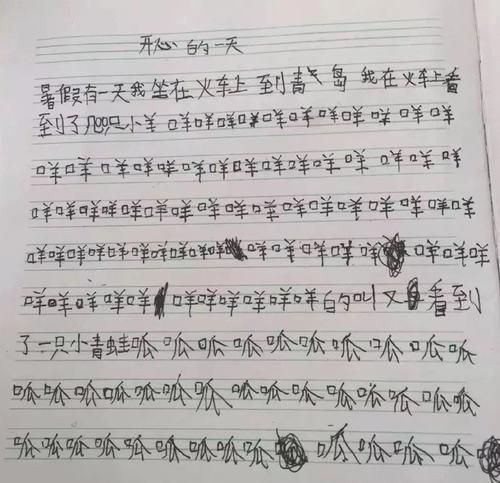 开心的一天
暑假有一天我坐在火车上到青岛我在火车上看
到了几00只小羊咩咩咩咩咩咩咩咩咩咩咩咩
咩咩咩咩咩咩咩咩咩咩咩咩咩咩咩
咩咩咩咩咩咩咩咩咩咩咩咩咩咩咩咩咩
咩咩咩咩咩咩咩咩咩咩咩咩咩咩咩咩咩
咩咩咩咩咩咩咩咩咩咩咩的叫又看到
了一只小青蛙呱呱呱呱呱呱呱呱呱呱
呱呱呱呱呱呱呱呱呱呱呱呱呱呱呱
呱呱呱呱呱呱呱呱呱呱呱呱呱